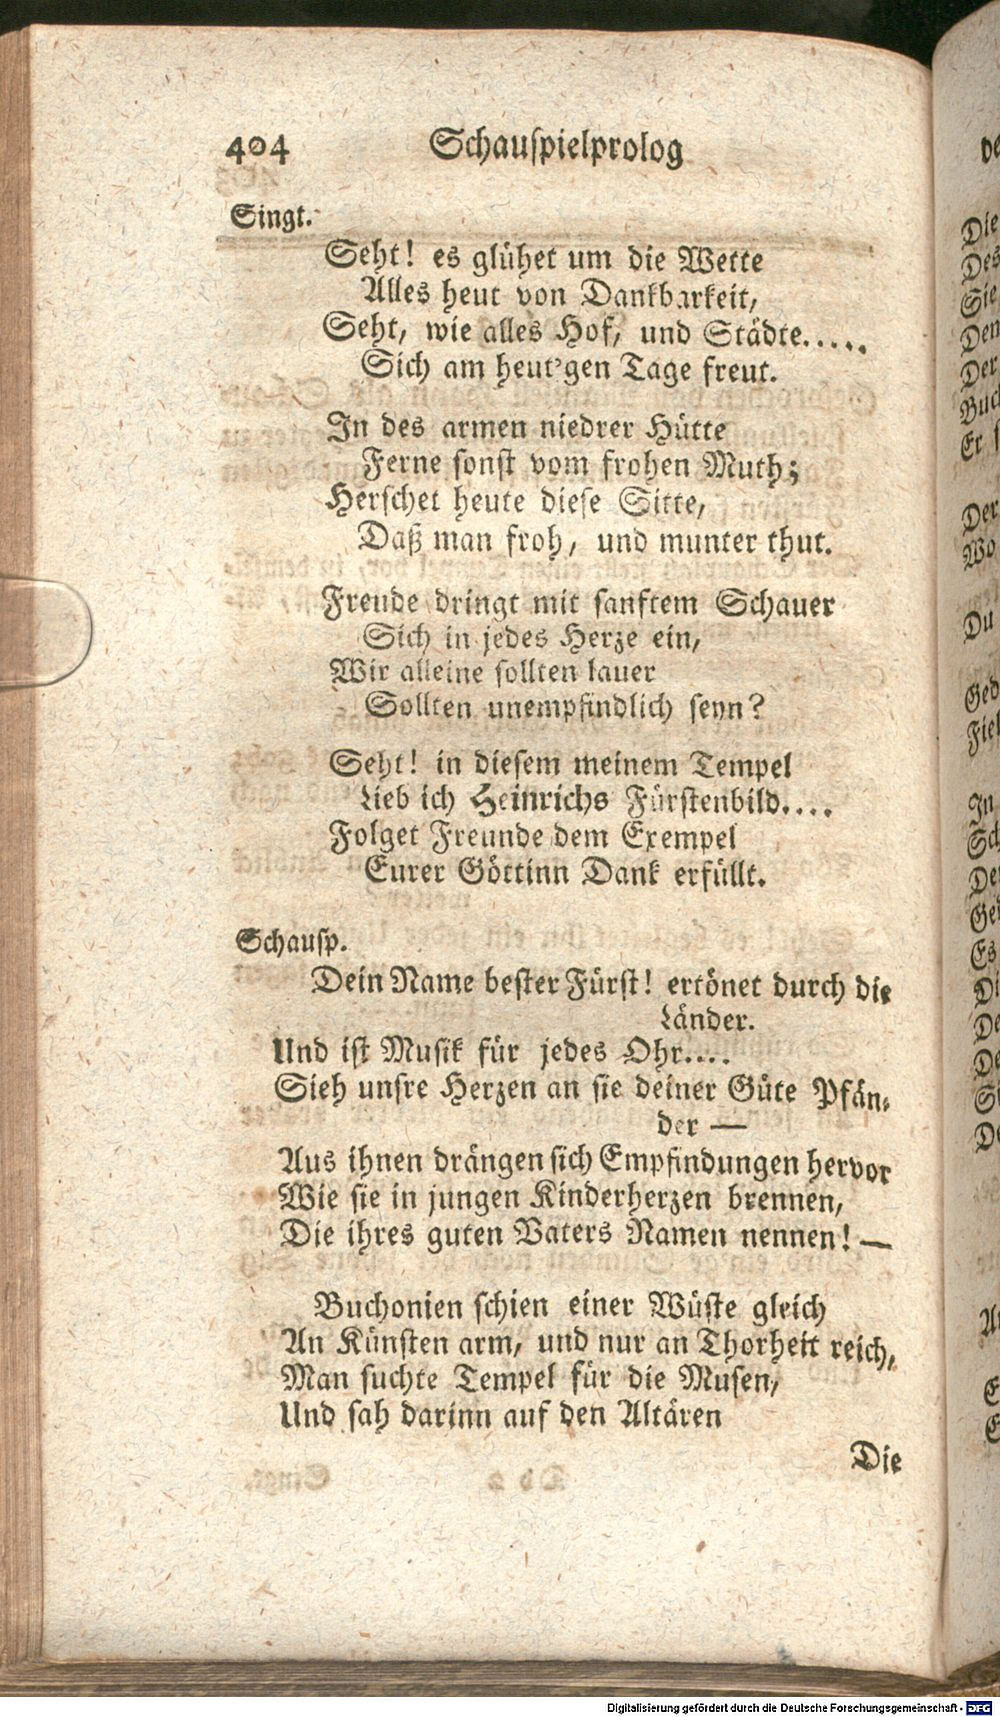 404 Schauspielprolog
Singt.
Seht! es glühet um die Wette
Alles heut von Dankbarkeit,
Seht, wie alles Hof, und Städte.....
Sich am heut'gen Tage freut.
In des armen niedrer Hütte
Ferne sonst vom frohen Muth;
Herschet heute diese Sitte,
Daß man froh, und munter thut.
Freude dringt mit sanftem Schauer
Sich in jedes Herze ein,
Wir alleine sollten lauer
Sollten unempfindlich seyn?
Seht! in diesem meinem Tempel
Lieb ich Heinrichs Fürstenbild....
Folget Freunde dem Exempel
Eurer Göttinn Dank erfüllt.
Schausp.
Dein Name bester Fürst! ertönet durch die
Länder.
Und ist Musik für jedes Ohr....
Sieh unsre Herzen an sie deiner Güte Pfän-
der —
Aus ihnen drängen sich Empfindungen hervor
Wie sie in jungen Kinderherzen brennen,
Die ihres guten Vaters Namen nennen! —
Buchonien schien einer Wüste gleich
An Künsten arm, und nur an Thorheit reich,
Man suchte Tempel für die Musen,
Und sah darinn auf den Altären
Die
Digitalisierung gefördert durch die Deutsche Forschungsgemeinschaft - DFG